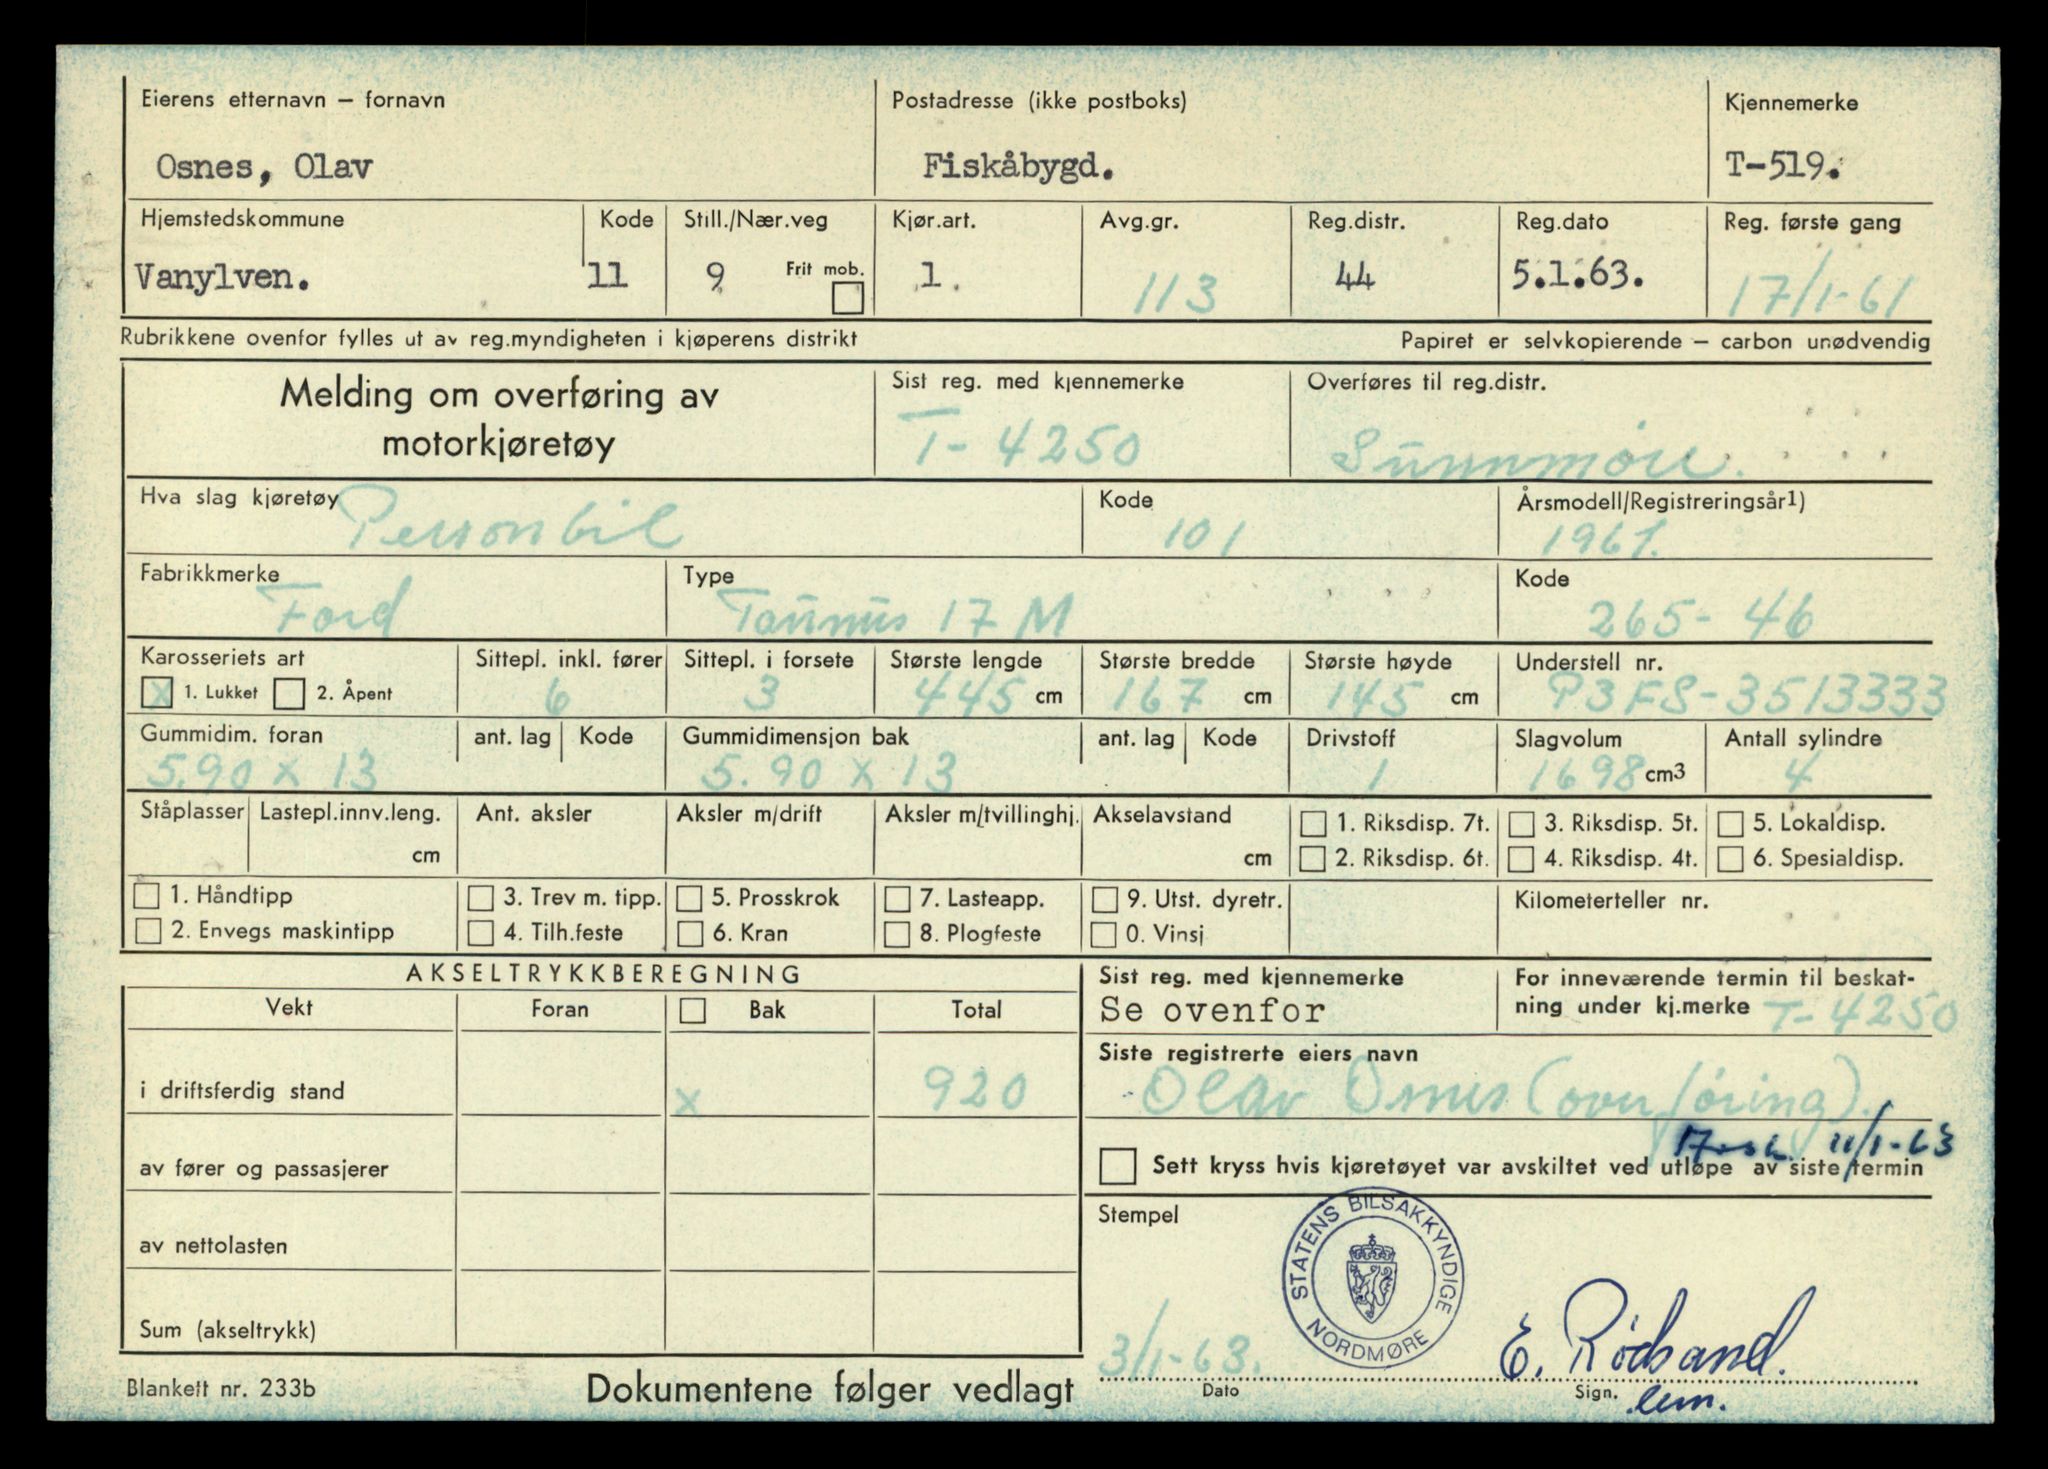 Eierens etternavn – fornavn
Postadresse (ikke postboks)
Kjennemerke
Osnes, Olav
Fiskåbygd.
T-519.
Hjemstedskommune
Kode
Still./Nær.veg
Kjør.art.
Avg.gr.
Reg.distr.
Reg.dato
Reg. første gang
Vanylven.
11
9
Frit mob.
1.
113
44
5.1.63.
17/1-61
Rubrikkene ovenfor fylles ut av reg.myndigheten i kjøperens distrikt
Papiret er selvkopierende – carbon unødvendig
Melding om overføring av
motorkjøretøy
Sist reg. med kjennemerke
T-4250
Overføres til reg.distr.
Sunnmöre.
Hva slag kjøretøy
Personbil
Kode
101
Årsmodell/Registreringsår1)
1961.
Fabrikkmerke
Ford
Type
Taunus 17 M
Kode
265-46
Karosseriets art
X 1. Lukket
2. Åpent
Sittepl. inkl. fører
6
Sittepl. i forsete
3
Største lengde
445 cm
Største bredde
167 cm
Største høyde
145 cm
Understell nr.
P3FS-3513333
Gummidim. foran
5.90 x 13
ant. lag
Kode
Gummidimensjon bak
5.90 x 13
ant. lag
Kode
Drivstoff
1
Slagvolum
1698 cm3
Antall sylindre
4
Ståplasser
Lastepl.innv.leng.
cm
Ant. aksler
Aksler m/drift
Aksler m/tvillinghj.
Akselavstand
cm
1. Riksdisp. 7t.
2. Riksdisp. 6t.
3. Riksdisp. 5t.
4. Riksdisp. 4t.
5. Lokaldisp.
6. Spesialdisp.
1. Håndtipp
2. Envegs maskintipp
3. Trev m. tipp.
4. Tilh.feste
5. Prosskrok
6. Kran
7. Lasteapp.
8. Plogfeste
9. Utst. dyretr.
0. Vinsj
Kilometerteller nr.
AKSELTRYKKBEREGNING
Vekt
Foran
Bak
Total
i driftsferdig stand
x
920
av fører og passasjerer
av nettolasten
Sum (akseltrykk)
Sist reg. med kjennemerke
Se ovenfor
For inneværende termin til beskat-
ning under kj.merke T-4250
Siste registrerte eiers navn
Olav Osnes (overföring).
11/1-63
Sett kryss hvis kjøretøyet var avskiltet ved utløpe av siste termin
Stempel
STATENS BILSAKKYNDIGE
NORDMØRE
3/1-63.
E. Rödsand.
Dato
Sign.
Blankett nr. 233b
Dokumentene følger vedlagt